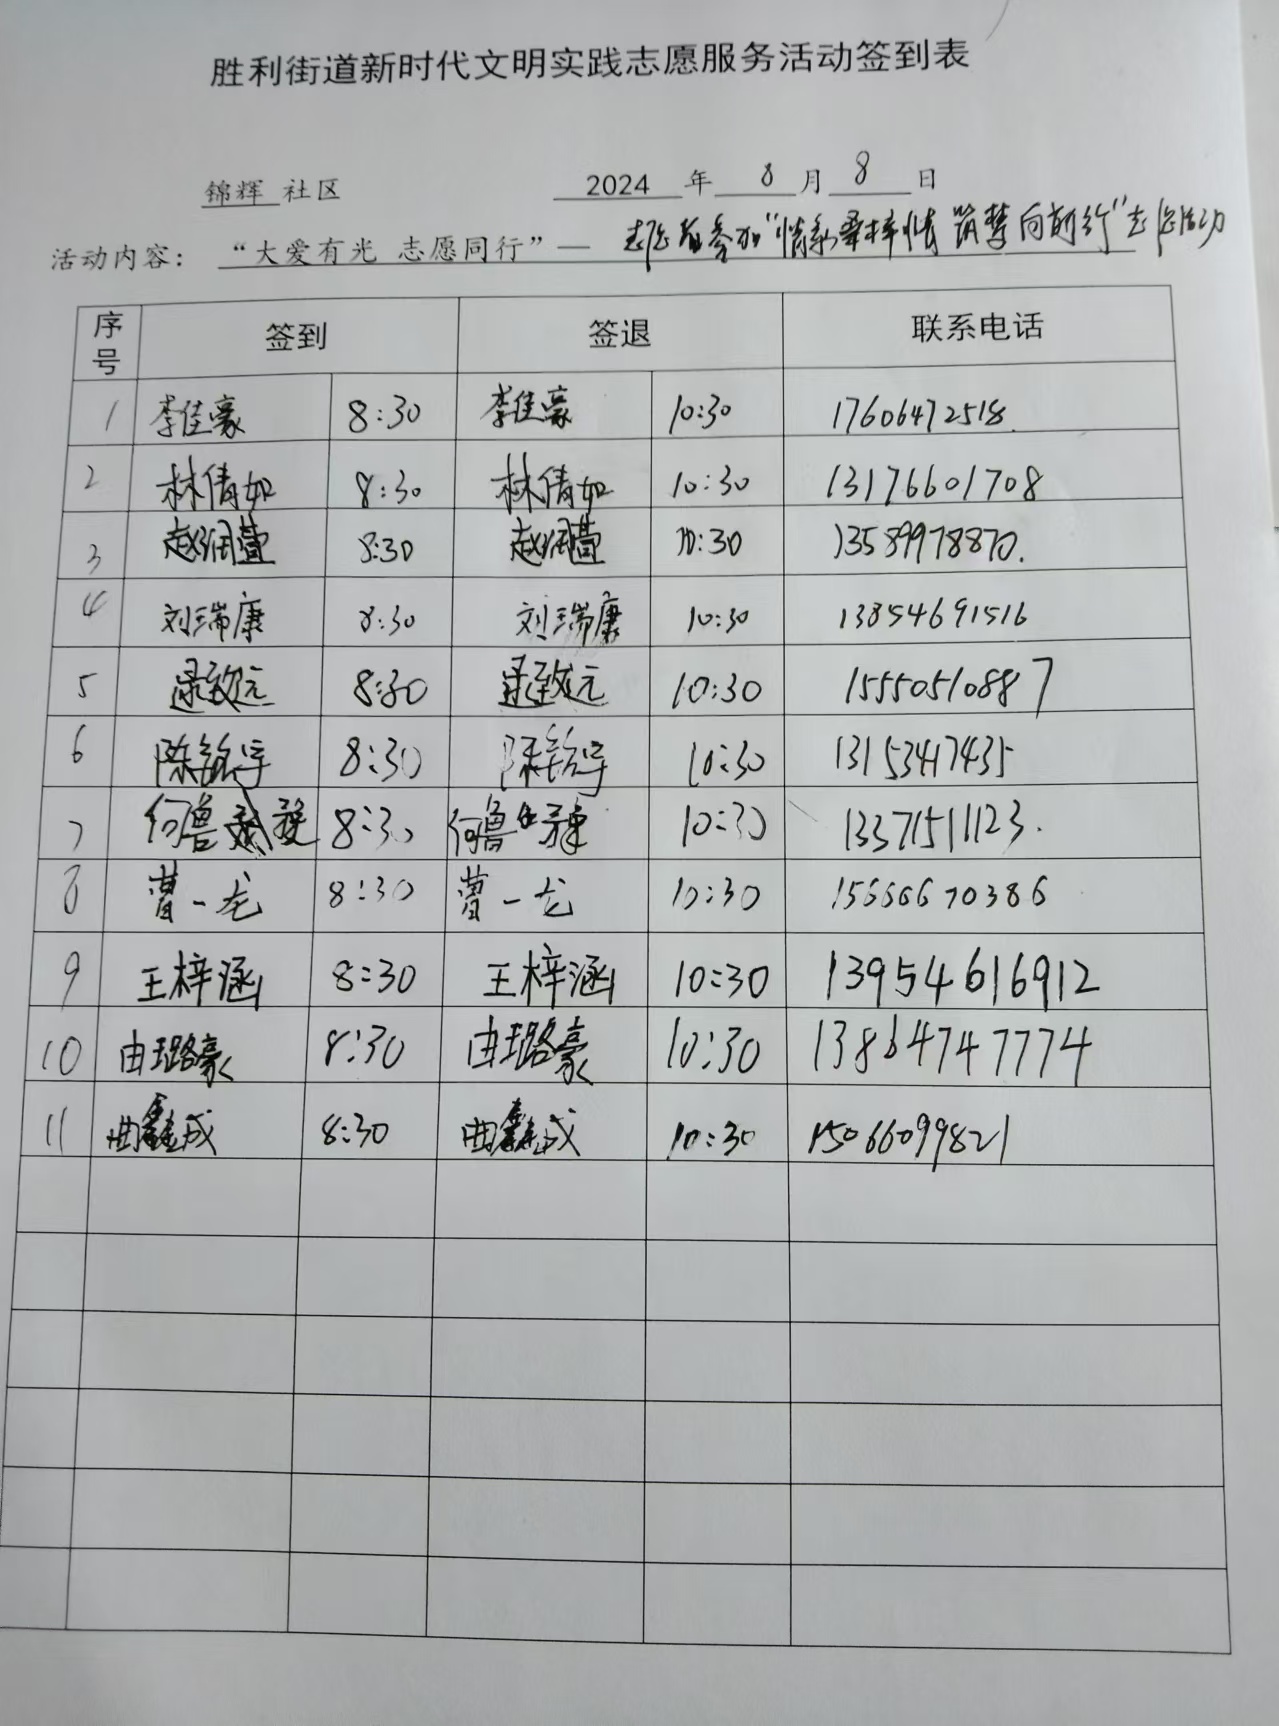 胜利街道新时代文明实践志愿服务活动签到表
锦辉 社区 2024 年 8 月 8 日
活动内容： “大爱有光 志愿同行”— 志愿者参加“情系桑梓情 筑梦向前行”志愿活动
序号 签到 签退 联系电话
1 李佳豪 8:30 李佳豪 10:30 17606472518
2 林倩如 8:30 林倩如 10:30 13176601708
3 赵润萱 8:30 赵润萱 10:30 13589978870.
4 刘瑞康 8:30 刘瑞康 10:30 13854691516
5 逯致远 8:30 逯致远 10:30 15550510887
6 陈铭宇 8:30 陈铭宇 10:30 13153417435
7 何鲁 8:30 何鲁 10:30 13371511123.
8 曹一龙 8:30 曹一龙 10:30 15666670386
9 王梓涵 8:30 王梓涵 10:30 13954616912
10 由璐豪 8:30 由璐豪 10:30 13864747774
11 曲鑫成 8:30 曲鑫成 10:30 15066099821